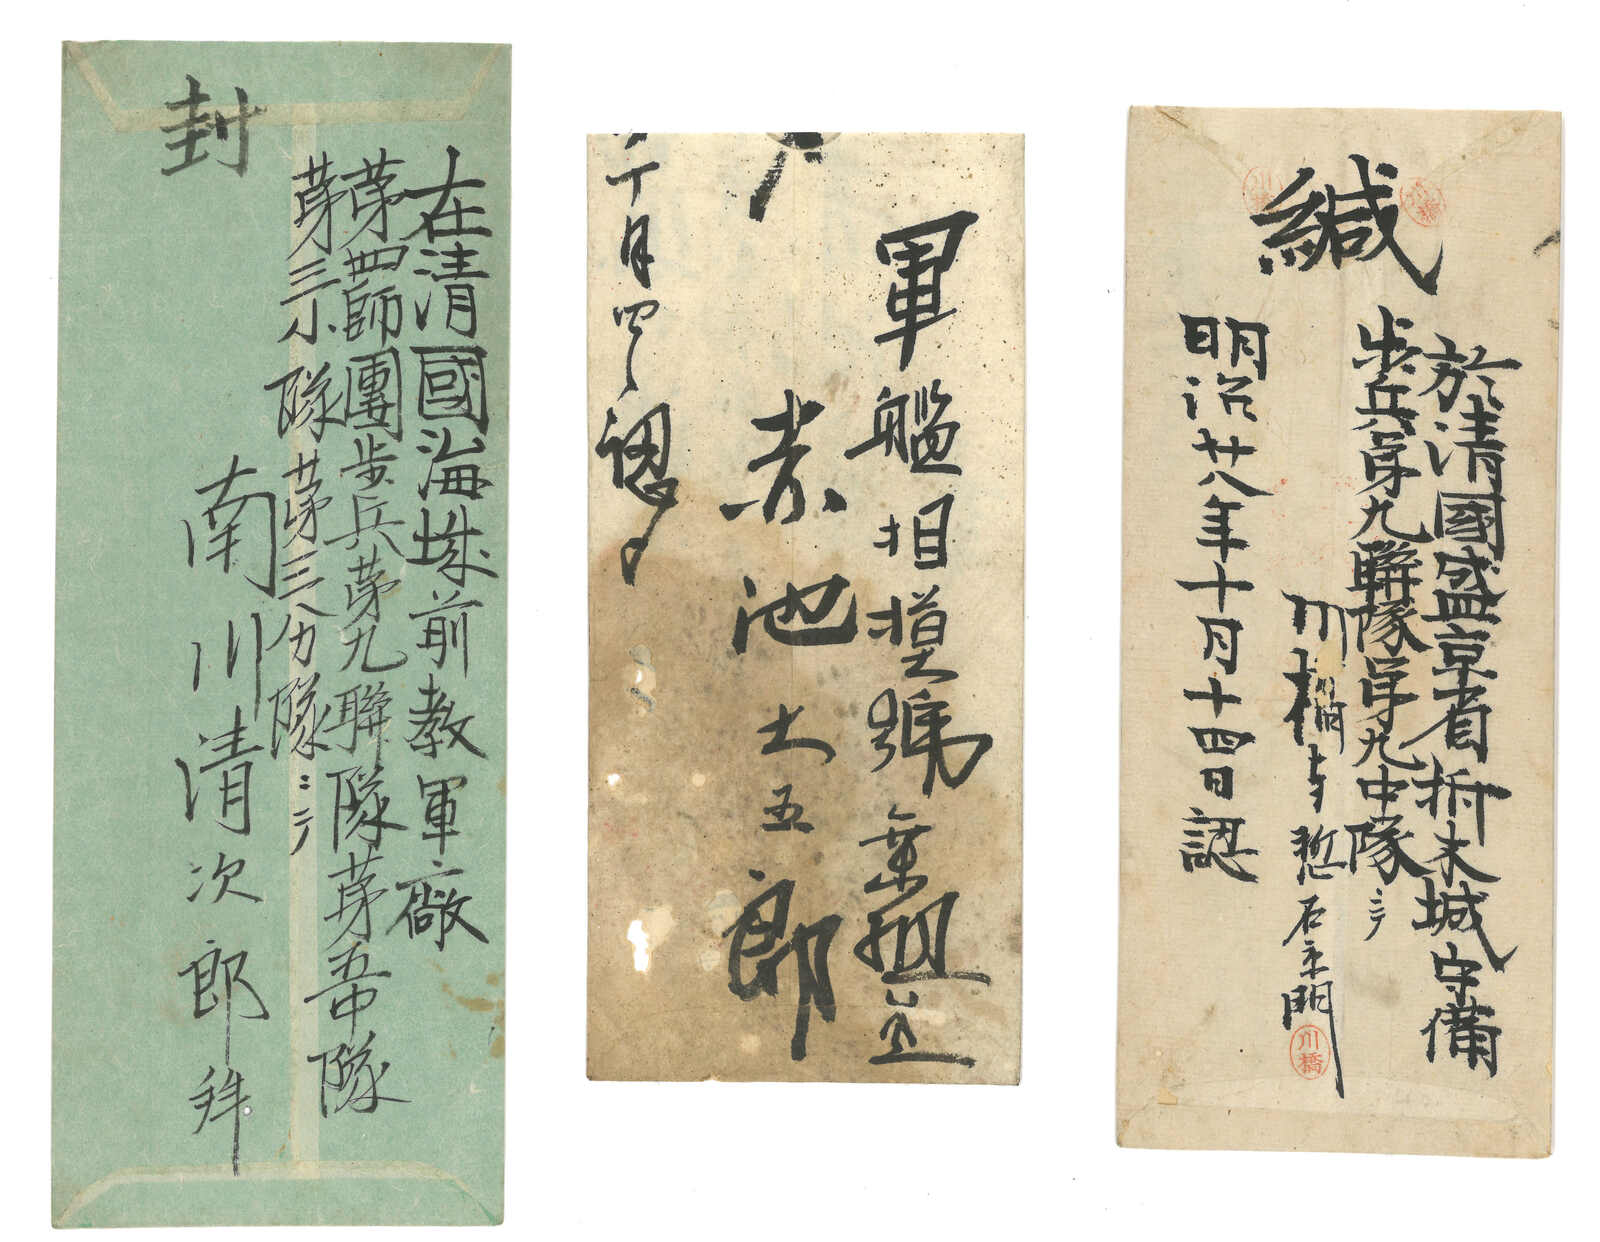 封
在清國海城前教軍廠
第四師團歩兵第九聯隊第五中隊
第三小隊第三分隊ニテ
南川清次郎拜
軍艦相摸號乗組
赤池大五郎
十月四日認
緘
於清國盛京省柝木城守備
歩兵第九聯隊第九中隊ニテ
川橋
川橋
明治廿八年十月十四日認